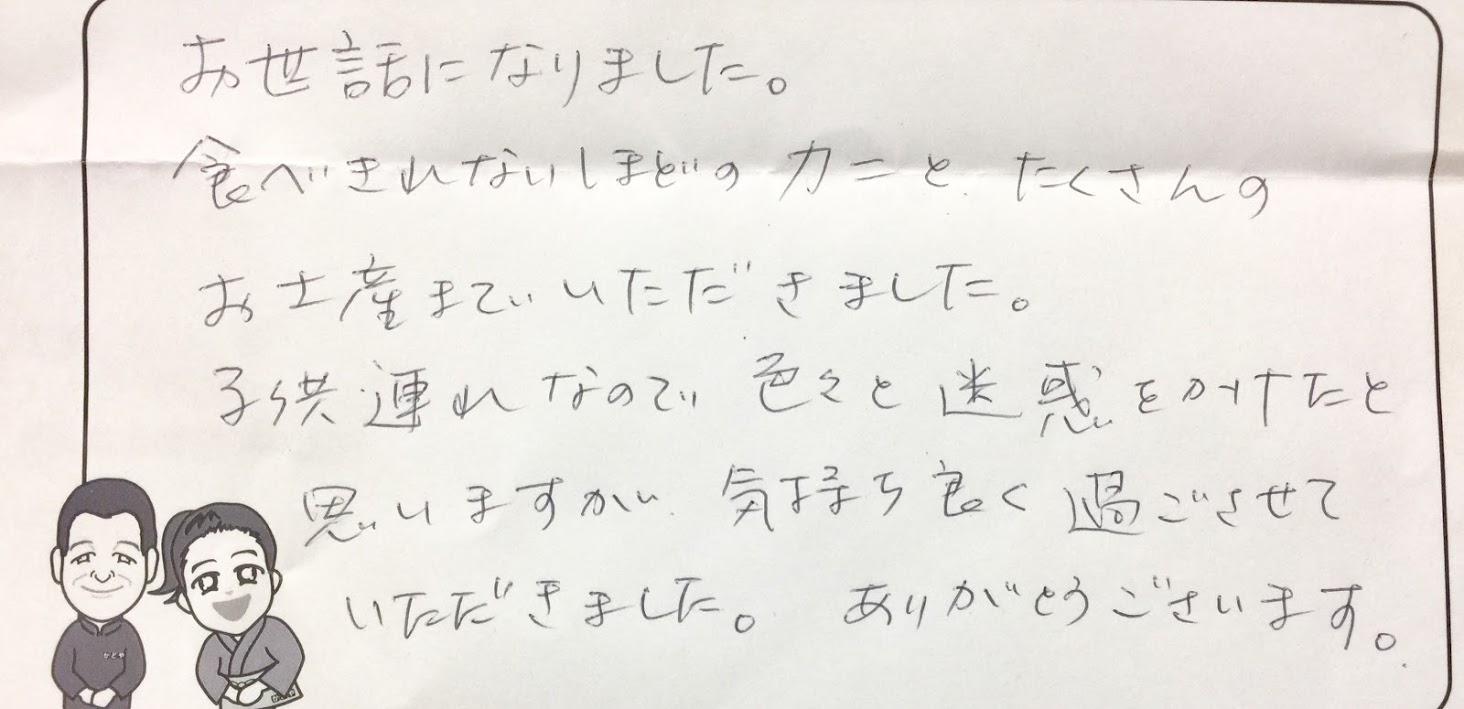 お世話になりました。
食べきれないほどのカニと、たくさんの
お土産までいただきました。
子供連れなので、色々と迷惑をかけたと
思いますが、気持ち良く過ごさせて
いただきました。ありがとうございます。
かどや